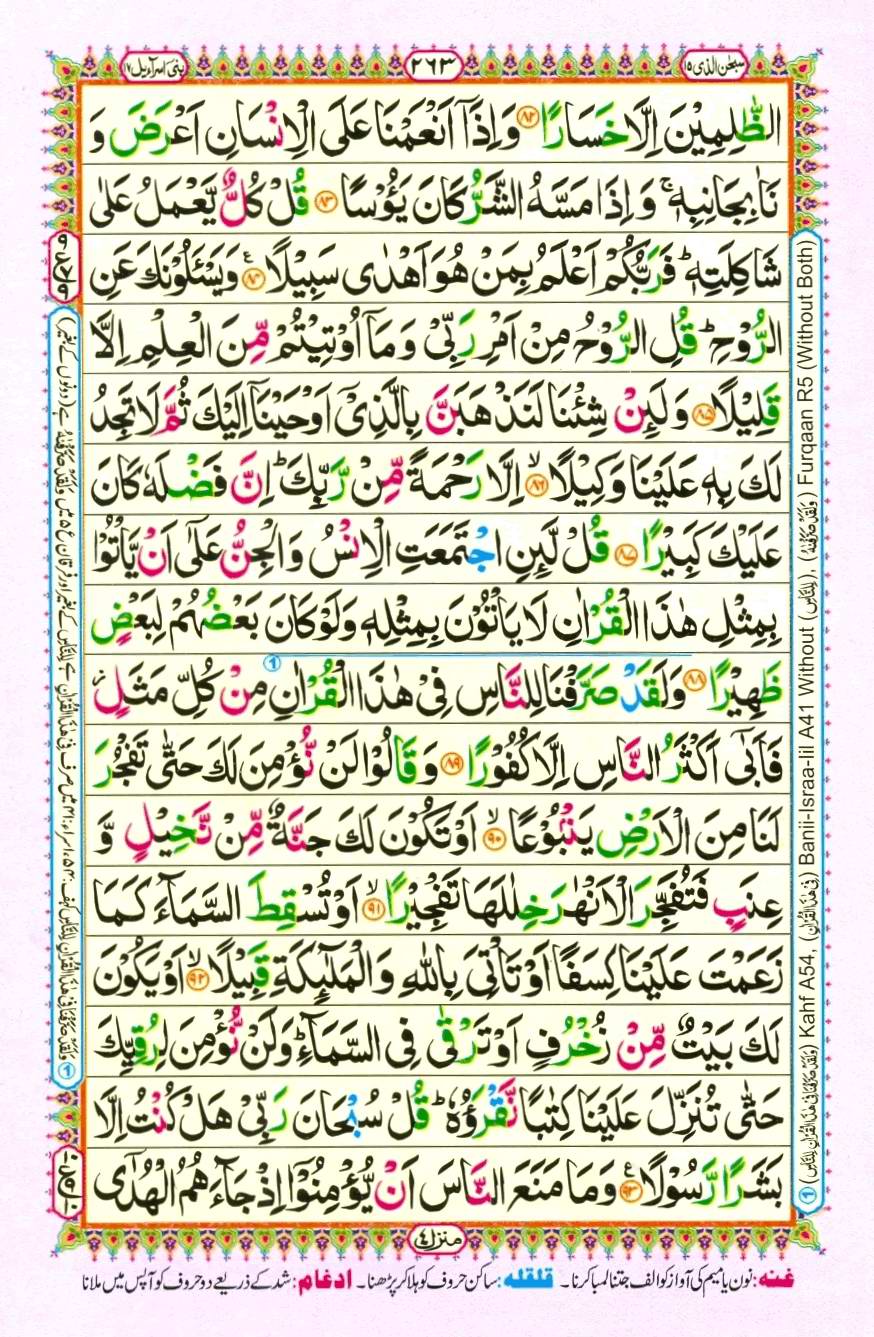 سبحٰن الذی ۱۵
۲۶۳
بنی اسرآءیل ۱۷
الظّٰلِمِيْنَ اِلَّا خَسَارًا ﴿۸۲﴾ وَاِذَاۤ اَنْعَمْنَا عَلَى الْاِنْسَانِ اَعْرَضَ وَ
نَاٰ بِجَانِبِهٖ ۚ وَ اِذَا مَسَّهُ الشَّرُّ كَانَ يَـُٔوْسًا ﴿۸۳﴾ قُلْ كُلٌّ يَّعْمَلُ عَلٰى
شَاكِلَتِهٖ ؕ فَرَبُّكُمْ اَعْلَمُ بِمَنْ هُوَ اَهْدٰى سَبِيْلًا ﴿۸۴﴾ وَيَسْـَٔلُوْنَكَ عَنِ
الرُّوْحِ ؕ قُلِ الرُّوْحُ مِنْ اَمْرِ رَبِّىْ وَ مَاۤ اُوْتِيْتُمْ مِّنَ الْعِلْمِ اِلَّا
قَلِيْلًا ﴿۸۵﴾ وَ لَئِنْ شِئْنَا لَنَذْهَبَنَّ بِالَّذِىْۤ اَوْحَيْنَاۤ اِلَيْكَ ثُمَّ لَا تَجِدُ
لَكَ بِهٖ عَلَيْنَا وَكِيْلًا ۙ﴿۸۶﴾ اِلَّا رَحْمَةً مِّنْ رَّبِّكَ ؕ اِنَّ فَضْلَهٗ كَانَ
عَلَيْكَ كَبِيْرًا ﴿۸۷﴾ قُلْ لَّئِنِ اجْتَمَعَتِ الْاِنْسُ وَ الْجِنُّ عَلٰٓى اَنْ يَّاْتُوْا
بِمِثْلِ هٰذَا الْقُرْاٰنِ لَا يَاْتُوْنَ بِمِثْلِهٖ وَ لَوْ كَانَ بَعْضُهُمْ لِبَعْضٍ
ظَهِيْرًا ﴿۸۸﴾ وَلَقَدْ صَرَّفْنَا لِلنَّاسِ فِىْ هٰذَا الْقُرْاٰنِ مِنْ كُلِّ مَثَلٍ ؗ
فَاَبٰٓى اَكْثَرُ النَّاسِ اِلَّا كُفُوْرًا ﴿۸۹﴾ وَ قَالُوْا لَنْ نُّؤْمِنَ لَكَ حَتّٰى تَفْجُرَ
لَنَا مِنَ الْاَرْضِ يَنْۢبُوْعًا ۙ﴿۹۰﴾ اَوْ تَكُوْنَ لَكَ جَنَّةٌ مِّنْ نَّخِيْلٍ وَّ
عِنَبٍ فَتُفَجِّرَ الْاَنْهٰرَ خِلٰلَهَا تَفْجِيْرًا ۙ﴿۹۱﴾ اَوْ تُسْقِطَ السَّمَآءَ كَمَا
زَعَمْتَ عَلَيْنَا كِسَفًا اَوْ تَاْتِىَ بِاللّٰهِ وَ الْمَلٰٓئِكَةِ قَبِيْلًا ۙ﴿۹۲﴾ اَوْ يَكُوْنَ
لَكَ بَيْتٌ مِّنْ زُخْرُفٍ اَوْ تَرْقٰى فِى السَّمَآءِ ؕ وَ لَنْ نُّؤْمِنَ لِرُقِيِّكَ
حَتّٰى تُنَزِّلَ عَلَيْنَا كِتٰبًا نَّقْرَؤُهٗ ؕ قُلْ سُبْحَانَ رَبِّىْ هَلْ كُنْتُ اِلَّا
بَشَرًا رَّسُوْلًا ﴿۹۳﴾ وَ مَا مَنَعَ النَّاسَ اَنْ يُّؤْمِنُوْۤا اِذْ جَآءَهُمُ الْهُدٰٓى
① (وَلَقَدْ صَرَّفْنَا فِىْ هٰذَا الْقُرْاٰنِ لِلنَّاسِ) Kahf A54, (فِىْ هٰذَا الْقُرْاٰنِ) Banii-Israa-Iil A41 Without (لِلنَّاسِ), (وَلَقَدْ صَرَّفْنٰهُ) Furqaan R5 (Without Both)
منزل ۴
غنه: نون یا میم کی آواز کو الف جتنا لمبا کرنا۔ قلقله: ساکن حروف کو ہلا کر پڑھنا۔ ادغام: شد کے ذریعے دو حروف کو آپس میں ملانا